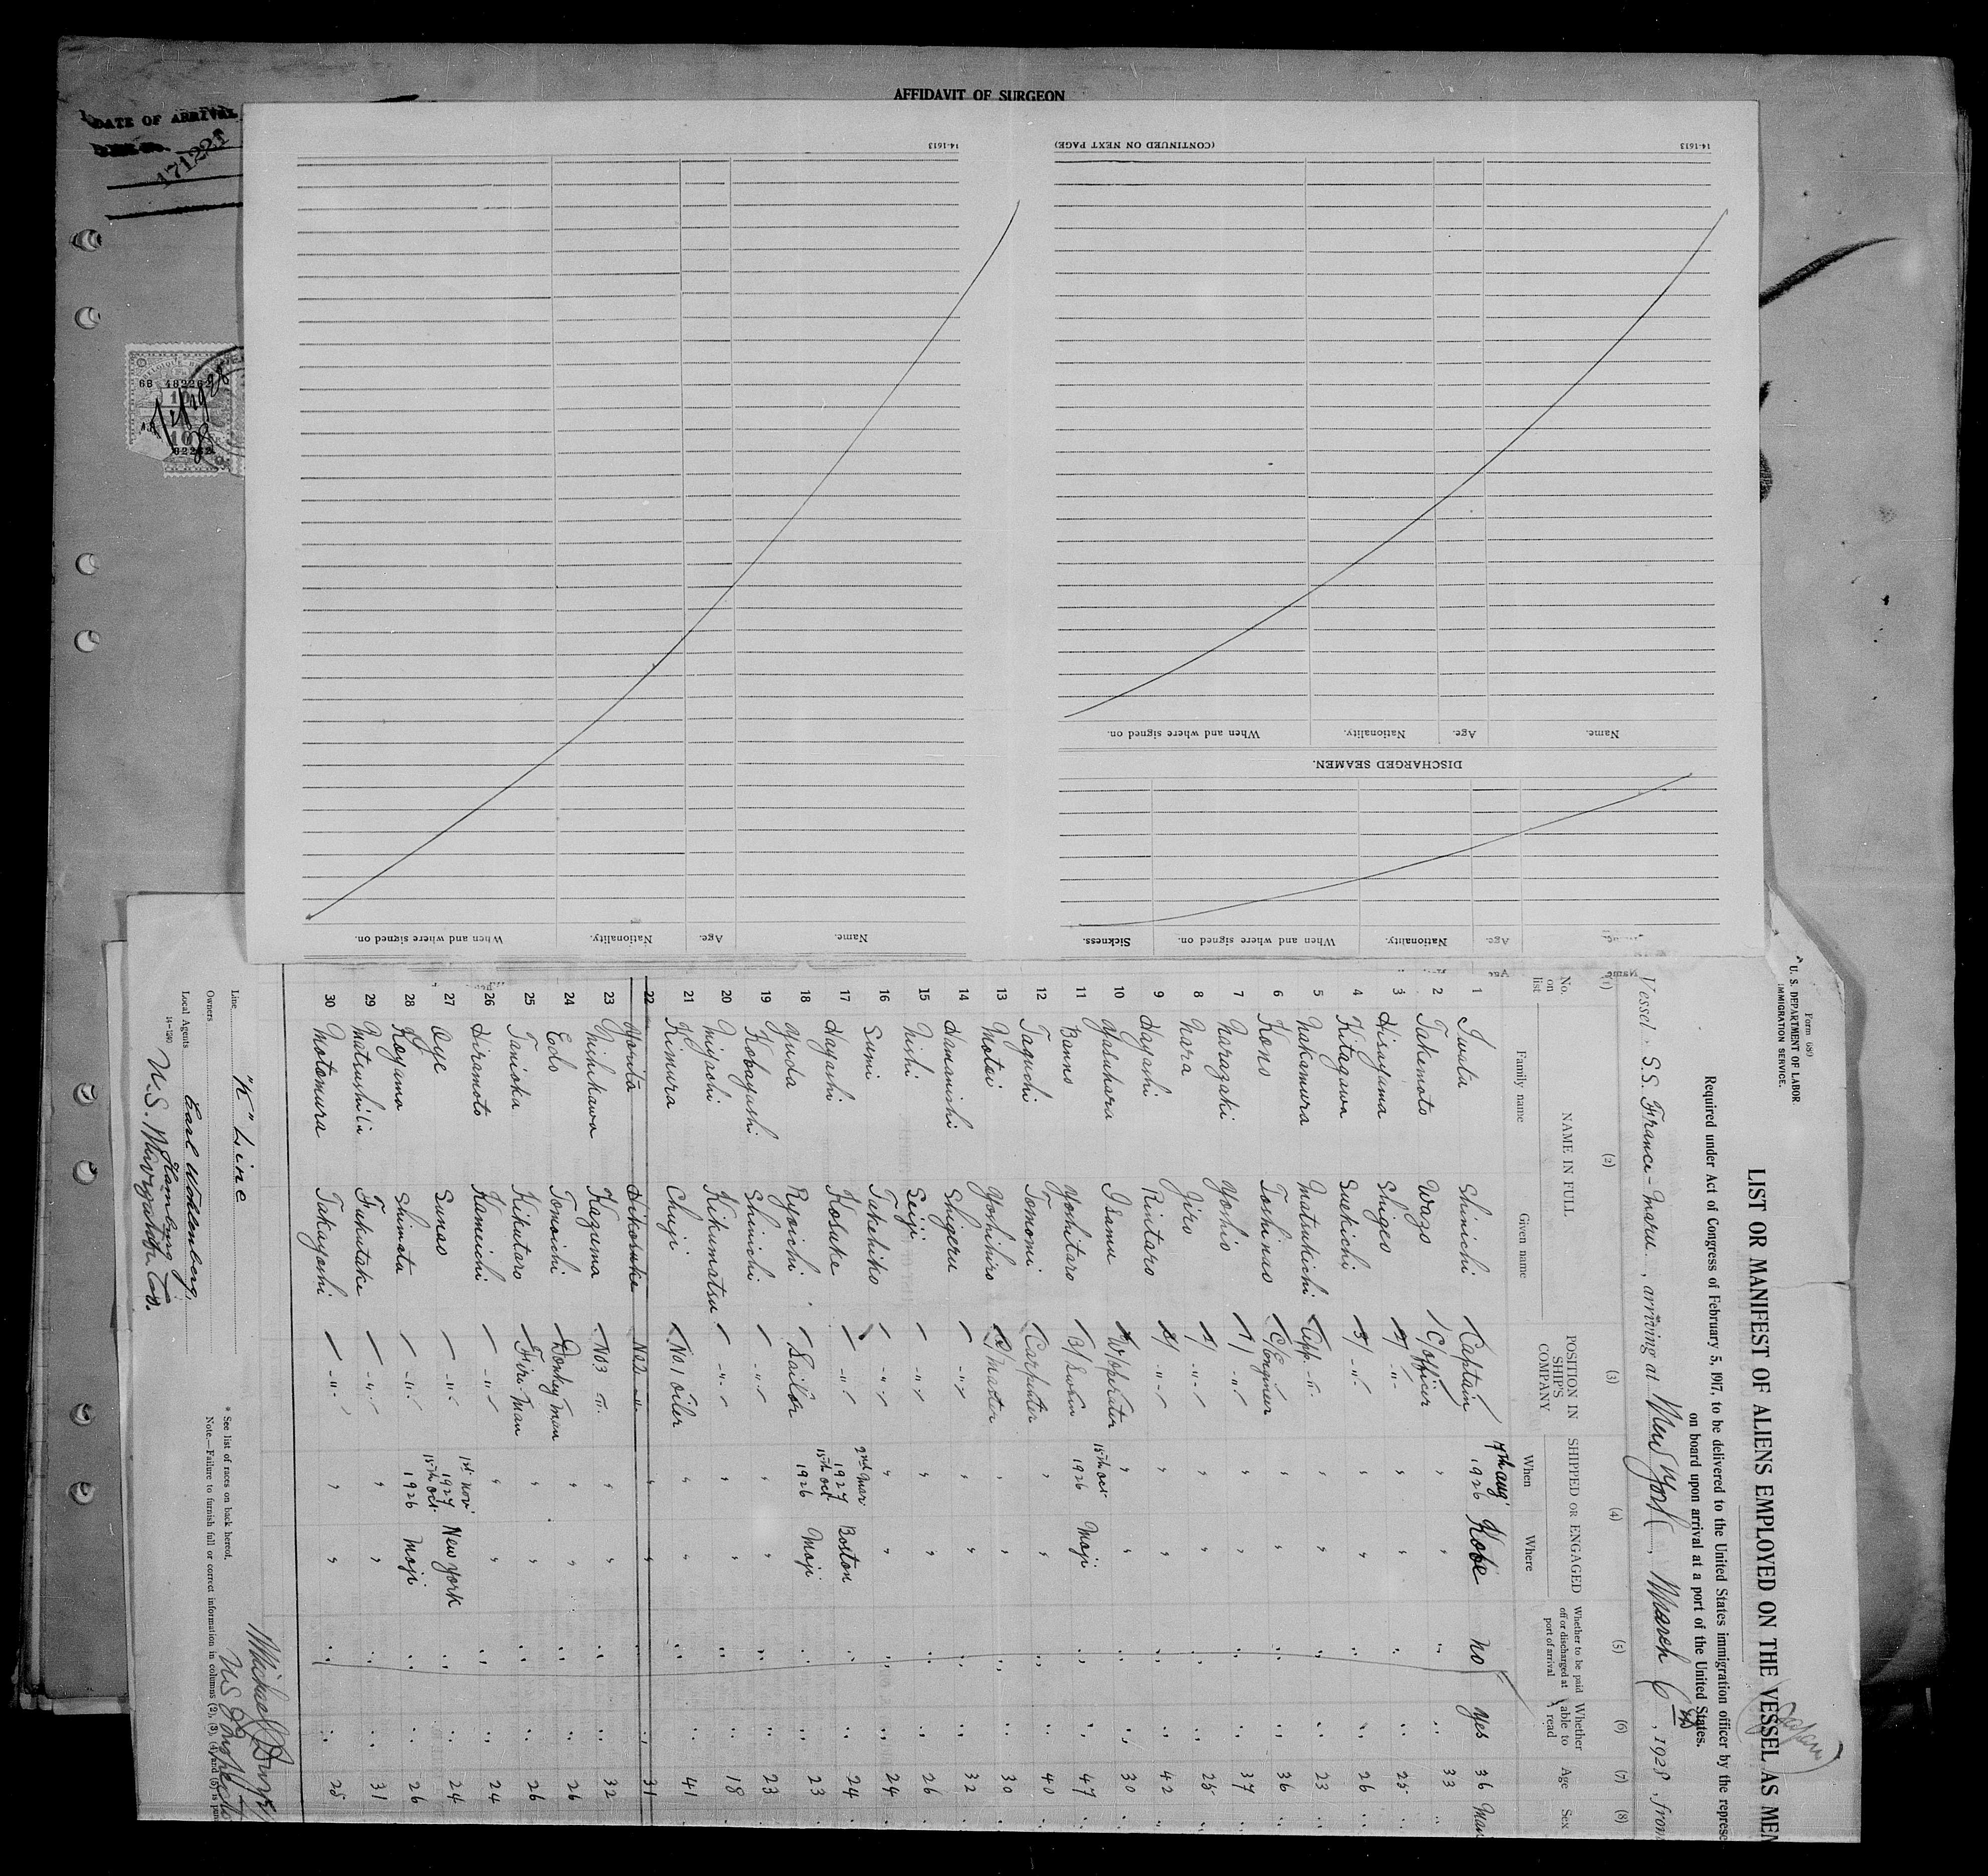 AFFIDAVIT OF SURGEON
DATE OF ARRIVAL
171221
68 482262
10
10
82262
14-1613
(CONTINUED ON NEXT PAGE)
14-1613
Name. Age. Nationality. When and where signed on.
DISCHARGED SEAMEN.
Name. Age. Nationality. When and where signed on. Sickness.
Name. Age. Nationality. When and where signed on.
Form 680
U. S. DEPARTMENT OF LABOR
IMMIGRATION SERVICE.
Japan
LIST OR MANIFEST OF ALIENS EMPLOYED ON THE VESSEL AS MEM
Required under Act of Congress of February 5, 1917, to be delivered to the United States immigration officer by the represe
on board upon arrival at a port of the United States.
Vessel S.S. France-Maru, arriving at New York, March 6th, 1928, from
(1) (2) (3) (4) (5) (6) (7) (8)
No. on list NAME IN FULL POSITION IN SHIP'S COMPANY SHIPPED OR ENGAGED Whether to be paid off or discharged at port of arrival Whether able to read Age Sex
Family name Given name When Where
1 Iwata Shinichi Captain 7th Aug 1926 Kobe no yes 36 Man
2 Takemoto Wazo C/Officer " " " " 33 "
3 Hirayama Shigeo 2/ -"- " " " " 25 "
4 Kitagawa Suekichi 3/ -"- " " " " 26 "
5 Nakamura Matsukichi App. -"- " " " " 23 "
6 Kono Toshinao C/Engineer " " " " 36 "
7 Narazaki Yoshio 1/ -"- " " " " 37 "
8 Nara Jiro -"- " " " " 25 "
9 Hayashi Rintaro -"- " " " " 42 "
10 Yasuhara Isamu W/Operator " " " " 30 "
11 Banno Yoshitaro B/Swain 15th Oct 1926 Moji " " 47 "
12 Taguchi Tomomi Carpenter " " " " 40 "
13 Motoi Yoshihiro Q/Master " " " " 30 "
14 Hamanishi Shigeru -"- " " " " 32 "
15 Nishi Seiji -"- " " " " 26 "
16 Sumi Takehiko -"- " " " " 24 "
17 Hayashi Kosuke -"- 2nd Mar 1927 Boston " " 24 "
18 Yuda Ryoichi Sailor 15th Oct 1926 Moji " " 23 "
19 Kobayashi Shinichi -"- " " " " 23 "
20 Miyachi Kikumatsu -"- " " " " 18 "
21 Kimura Chuji No.1 Oiler " " " " 41 "
22 Morita Hikosuke No.2 -"- " " " " 31 "
23 Nishikawa Kazuma No3 -"- " " " " 32 "
24 Edo Tomoichi Donkey man " " " " 26 "
25 Tanioka Kikutaro Fire-Man " " " " 26 "
26 Hiramoto Kameichi -"- " " " " 24 "
27 Oye Sunao -"- 1st Nov 1927 New York " " 24 "
28 Koyama Shimata -"- 15th Oct 1926 Moji " " 26 "
29 Matsushita Fukutake -"- " " " " 31 "
30 Motomura Takayoshi -"- " " " " 25
Line "K" Line
Owners
Local Agents Earl Wohlenberg, Hamburg
14-1230
U.S. Navigation Co.
* See list of races on back hereof.
Note.—Failure to furnish full or correct information in columns (2), (3), (4) and (5) is pun
Michael
US Inspector